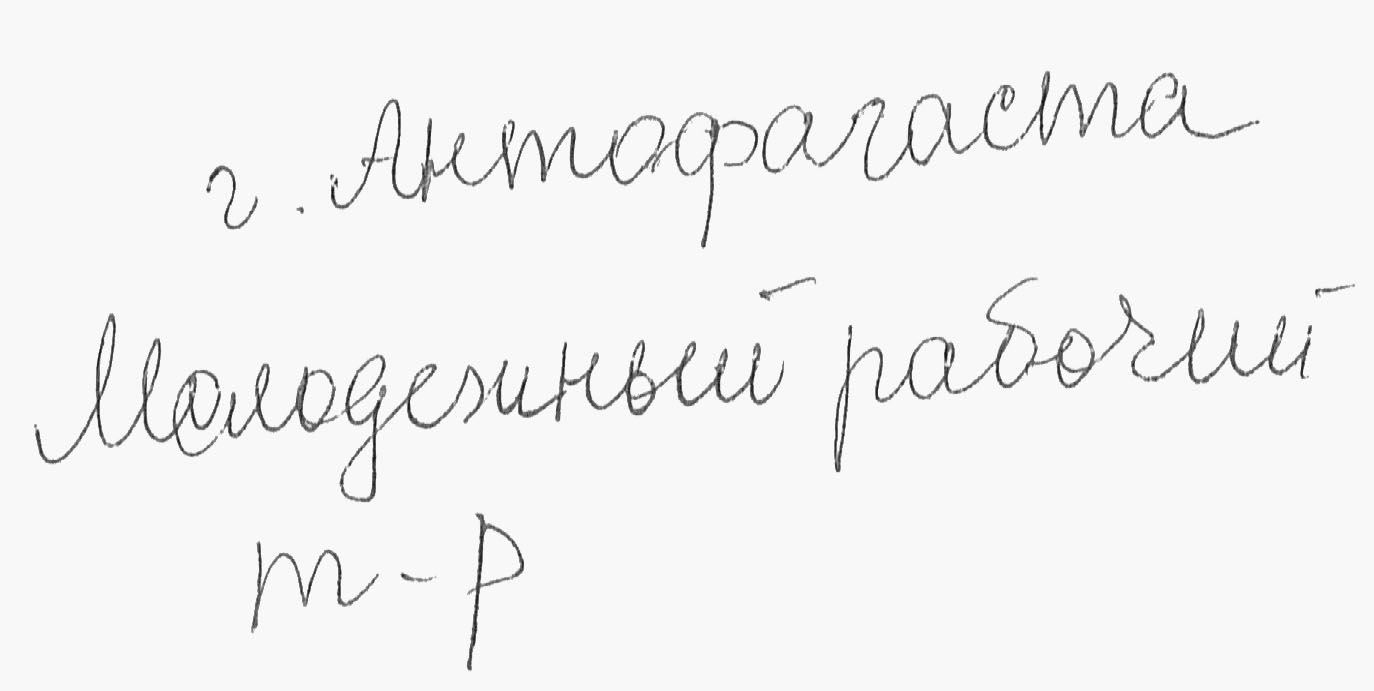 г. Антофагаста
Молодежный рабочий
т-р